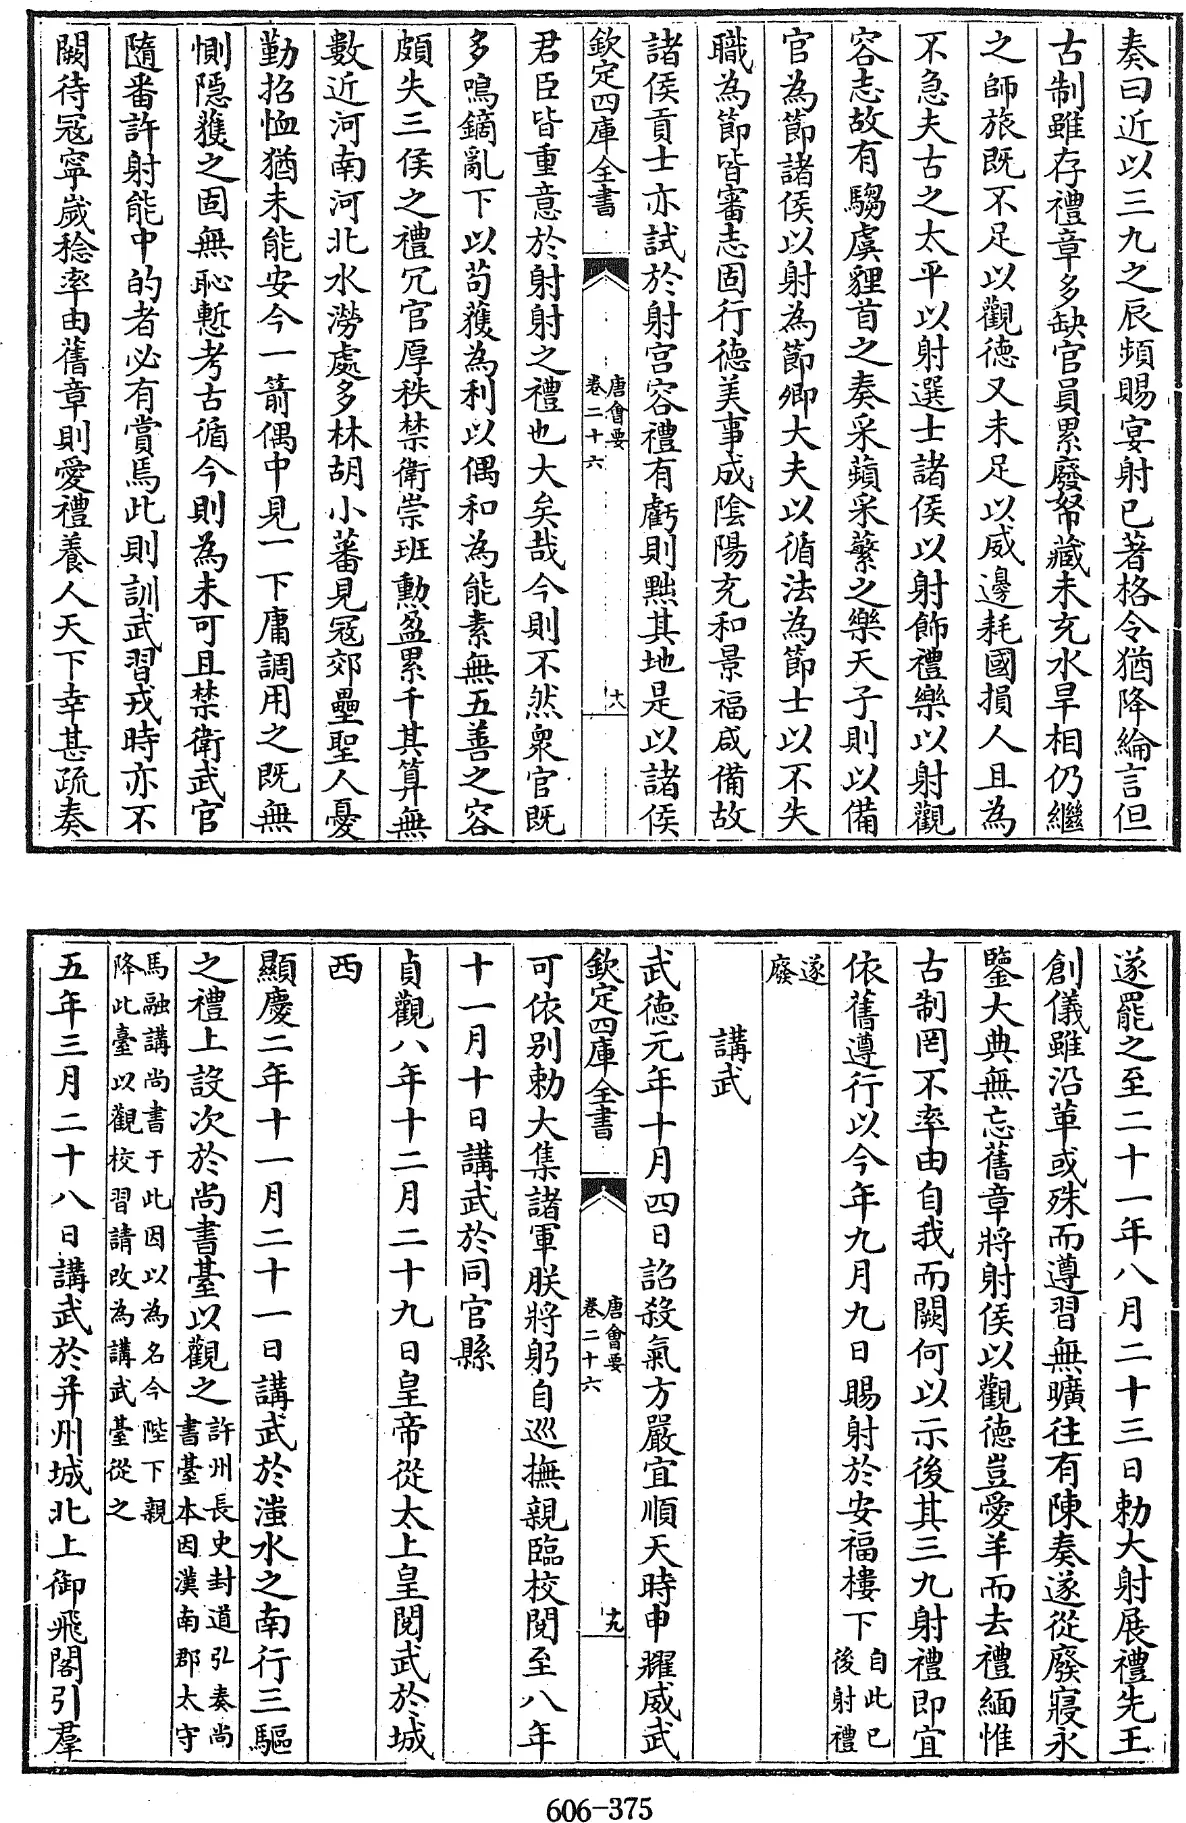 奏曰近以三九之辰頻賜宴射已著格令猶降綸言但
古制雖存禮章多缺官員累廢帑藏未充水旱相仍繼
之師旅既不足以觀德又未足以威邊耗國損人且為
不急夫古之太平以射選士諸侯以射飾禮樂以射觀
容志故有騶虞貍首之奏采蘋采蘩之樂天子則以備
官為節諸侯以射為節卿大夫以循法為節士以不失
職為節皆審志固行德美事成陰陽充和景福咸備故
諸侯貢士亦試於射宮容禮有虧則黜其地是以諸侯
欽定四庫全書
唐會要
卷二十六
十八
君臣皆重意於射射之禮也大矣哉今則不然衆官既
多鳴鏑亂下以苟獲為利以偶和為能素無五善之容
頗失三侯之禮冗官厚秩禁衛崇班勳盈累千其算無
數近河南河北水澇處多林胡小蕃見寇郊壘聖人憂
勤招恤猶未能安今一箭偶中見一下庸調用之既無
惻隠獲之固無恥慙考古循今則為未可且禁衛武官
隨番許射能中的者必有賞焉此則訓武習戎時亦不
闕待寇寧嵗稔率由舊章則愛禮養人天下幸甚疏奏
遂罷之至二十一年八月二十三日勅大射展禮先王
創儀雖沿革或殊而遵習無曠往有陳奏遂從廢寢永
鑒大典無忘舊章將射侯以觀德豈愛羊而去禮緬惟
古制罔不率由自我而闕何以示後其三九射禮即宜
依舊遵行以今年九月九日賜射於安福樓下自此已
後射禮
遂
廢
講武
武德元年十月四日詔殺氣方嚴宜順天時申耀威武
欽定四庫全書
唐會要
卷二十六
十九
可依别勅大集諸軍朕將躬自巡撫親臨校閱至八年
十一月十日講武於同官縣
貞觀八年十二月二十九日皇帝從太上皇閱武於城
西
顯慶二年十一月二十一日講武於滍水之南行三驅
之禮上設次於尚書臺以觀之許州長史封道弘奏尚
書臺本因漢南郡太守
馬融講尚書于此因以為名今陛下親
降此臺以觀校習請改為講武臺從之
五年三月二十八日講武於并州城北上御飛閣引羣
606-375